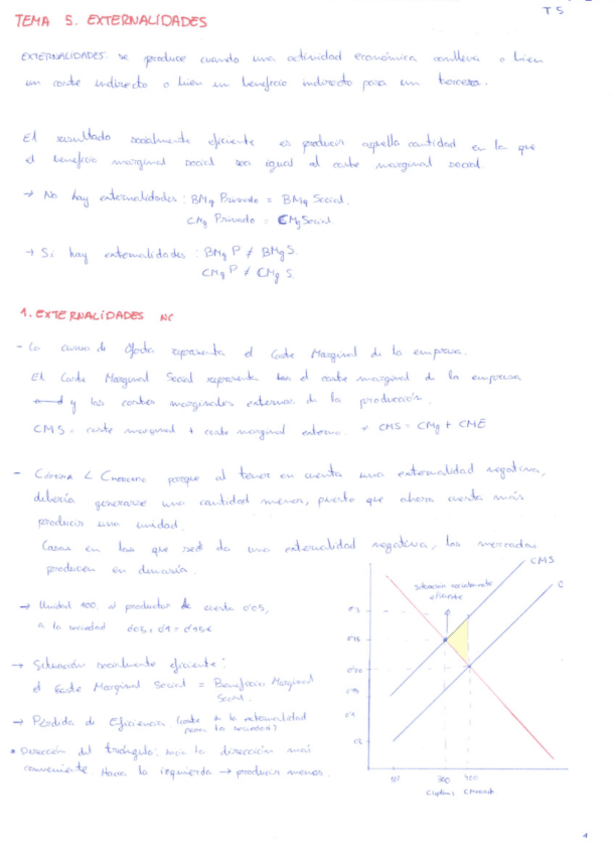 T5
TEMA 5. EXTERNALIDADES
EXTERNALIDADES: se produce cuando una actividad económica conlleva o bien
un coste indirecto o bien un beneficio indirecto para un tercero.
El resultado socialmente eficiente es producir aquella cantidad en la que
el beneficio marginal social sea igual al coste marginal social.
→ No hay externalidades: BMg Privado = BMg Social.
CMg Privado = CMg Social.
→ Si hay externalidades: BMg P ≠ BMg S.
CMg P ≠ CMg S.
1. EXTERNALIDADES NC
- La curva de Oferta representa el Coste Marginal de la empresa.
El Coste Marginal Social representa el coste marginal de la empresa
y los costes marginales externos de la producción.
CMS = coste marginal + coste marginal externo. → CMS = CMg + CME
- < porque al tener en cuenta una externalidad negativa,
debería generarse una cantidad menor, puesto que ahora cuesta más
producir una unidad.
Casos en los que se da una externalidad negativa, los mercados
producen en demasía.
→ Unidad 100, al productor le cuesta 0'05,
a la sociedad 0'05 + 0'1 = 0'15€
→ Situación socialmente eficiente:
el Coste Marginal Social = Beneficio Marginal
Social.
→ Pérdida de Eficiencia (coste de la externalidad
para la sociedad)
• Dirección del triángulo: hacia la dirección más
conveniente. Hacia la izquierda → producir menos.
CMS
C
Situación socialmente
eficiente
300
1